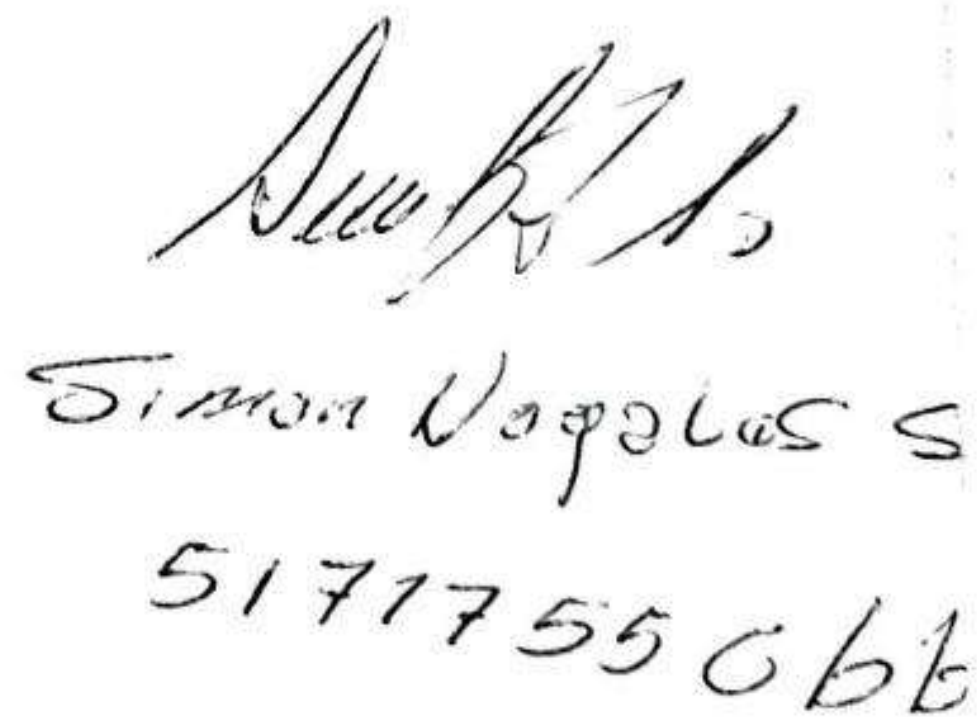 Simon Nogales S
5171755 Cbb